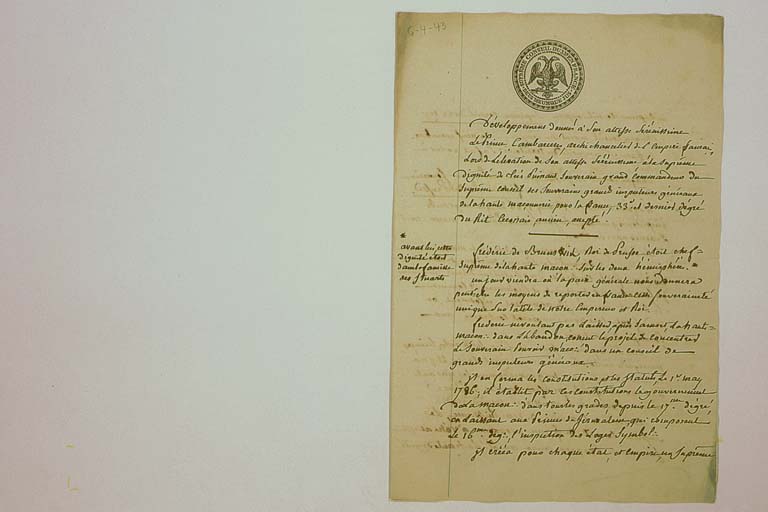 G-4-43
SUPREME CONSEIL DU 33ME
DEUS MEUMQUE JUS
Développement donné à Son altesse Sérénissime
Le Prince Cambacérès, archichancelier de l'Empire francais,
Lors de l'élévation de Son altesse Sérénissime, à la Suprême
dignité de très Puissant Souverain grand commandeur du
Suprême conseil des Souverains grands inspecteurs généraux
de la haute maçonnerie pour la france, 33e et dernier dégré
du Rit Ecossais, ancien, accepté.
*
avant lui cette
dignité étoit
dans la famille
des Stuarts
frédéric de Brunswick, Roi de Prusse étoit chef-
Suprême de la haute macon. Sur les deux hémisphères. *
un jour viendra où la paix générale nous donnera
peutêtre les moyens de reporter en france cette Souveraineté
unique Sur la tête de notre Empereur et Roi.
frédéric ne voulant pas Laisser après Sa mort, La haute
macon: dans L'abandon, concut le projet de concentrer
Le Souverain Pouvoir maco: dans un conseil de
grands inspecteurs généraux
Il en forma les constitutions et les Statuts, Le 1er may
1786; il établit par ces Constitutions le gouvernement
de La macon: dans tous les grades, depuis le 17me dégré,
en Laissant aux Princes de Jérusalem qui composent
Le 16me deg: l'inspection des Loges Symbol:
Il créea pour chaque état, et Empire, un Suprême